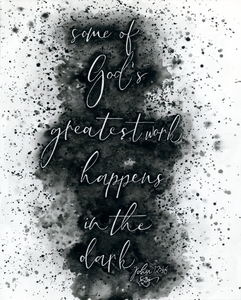 some of
God's
greatest work
happens
in the
dark
John